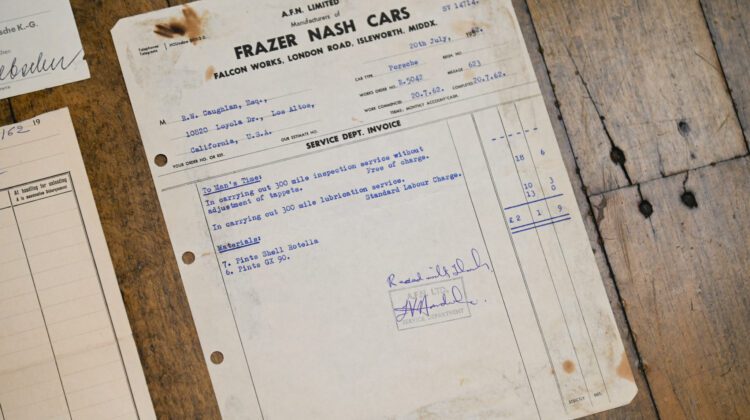 sche K.-G.
A.F.N. LIMITED
Manufacturers of
FRAZER NASH CARS
FALCON WORKS, LONDON ROAD, ISLEWORTH, MIDDX.
Telephone
Telegrams
HOUNSLOW
SV 14714.
20th July, 1962.
REGN. NO.
CAR TYPE Porsche
WORKS ORDER NO. R.5042 MILEAGE 623
WORK COMMENCED 20.7.62. COMPLETED 20.7.62.
TERMS: MONTHLY ACCOUNT/CASH.
M R.W. Caughlan, Esq.,
10820 Loyola Dr., Los Altos,
California, U.S.A.
YOUR ORDER NO. OR EST. OUR ESTIMATE NO.
SERVICE DEPT. INVOICE
To Men's Time:
In carrying out 300 mile inspection service without
adjustment of tappets. Free of charge.
In carrying out 300 mile lubrication service.
Standard Labour Charge. 18 6
Materials:
7. Pints Shell Rotella 10 3
6. Pints GX 90. 13 0
£2 1 9
Received with Thanks
A.F.N. LTD.
SERVICE DEPARTMENT
STRICTLY NET.
/62 19
At handling for unloading